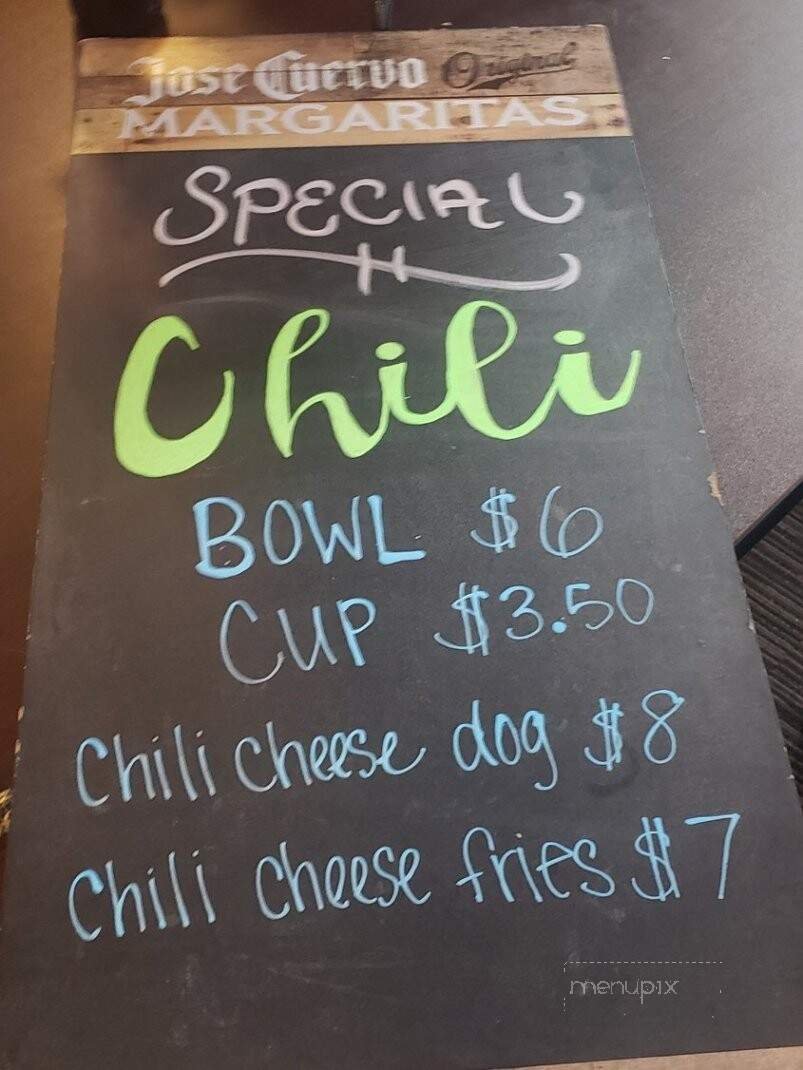 Jose Cuervo Original
MARGARITAS
SPECIAL
Chili
BOWL $6
CUP $3.50
Chili cheese dog $8
Chili cheese fries $7
menupix